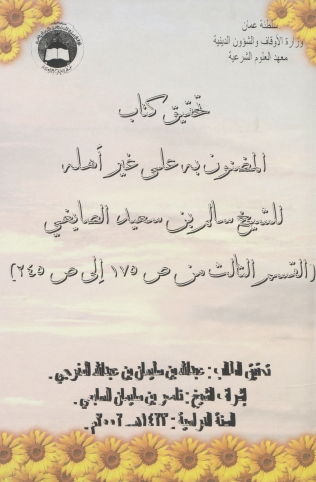 سلطنة عمان
وزارة الأوقاف والشؤون الدينية
معهد العلوم الشرعية
تحقيق كتاب
المضنون به على غير أهله
للشيخ سالم بن سعيد الصايغي
(القسم الثالث من ص ١٧٥ إلى ص ٢٤٥)
تحقيق الطالب : عبدالله بن سليمان بن عبدالله المفرجي .
إشراف الشيخ : ناصر بن سليمان السابعي .
السنة الدراسية : ١٤٢٢هـ ٢٠٠٢م .